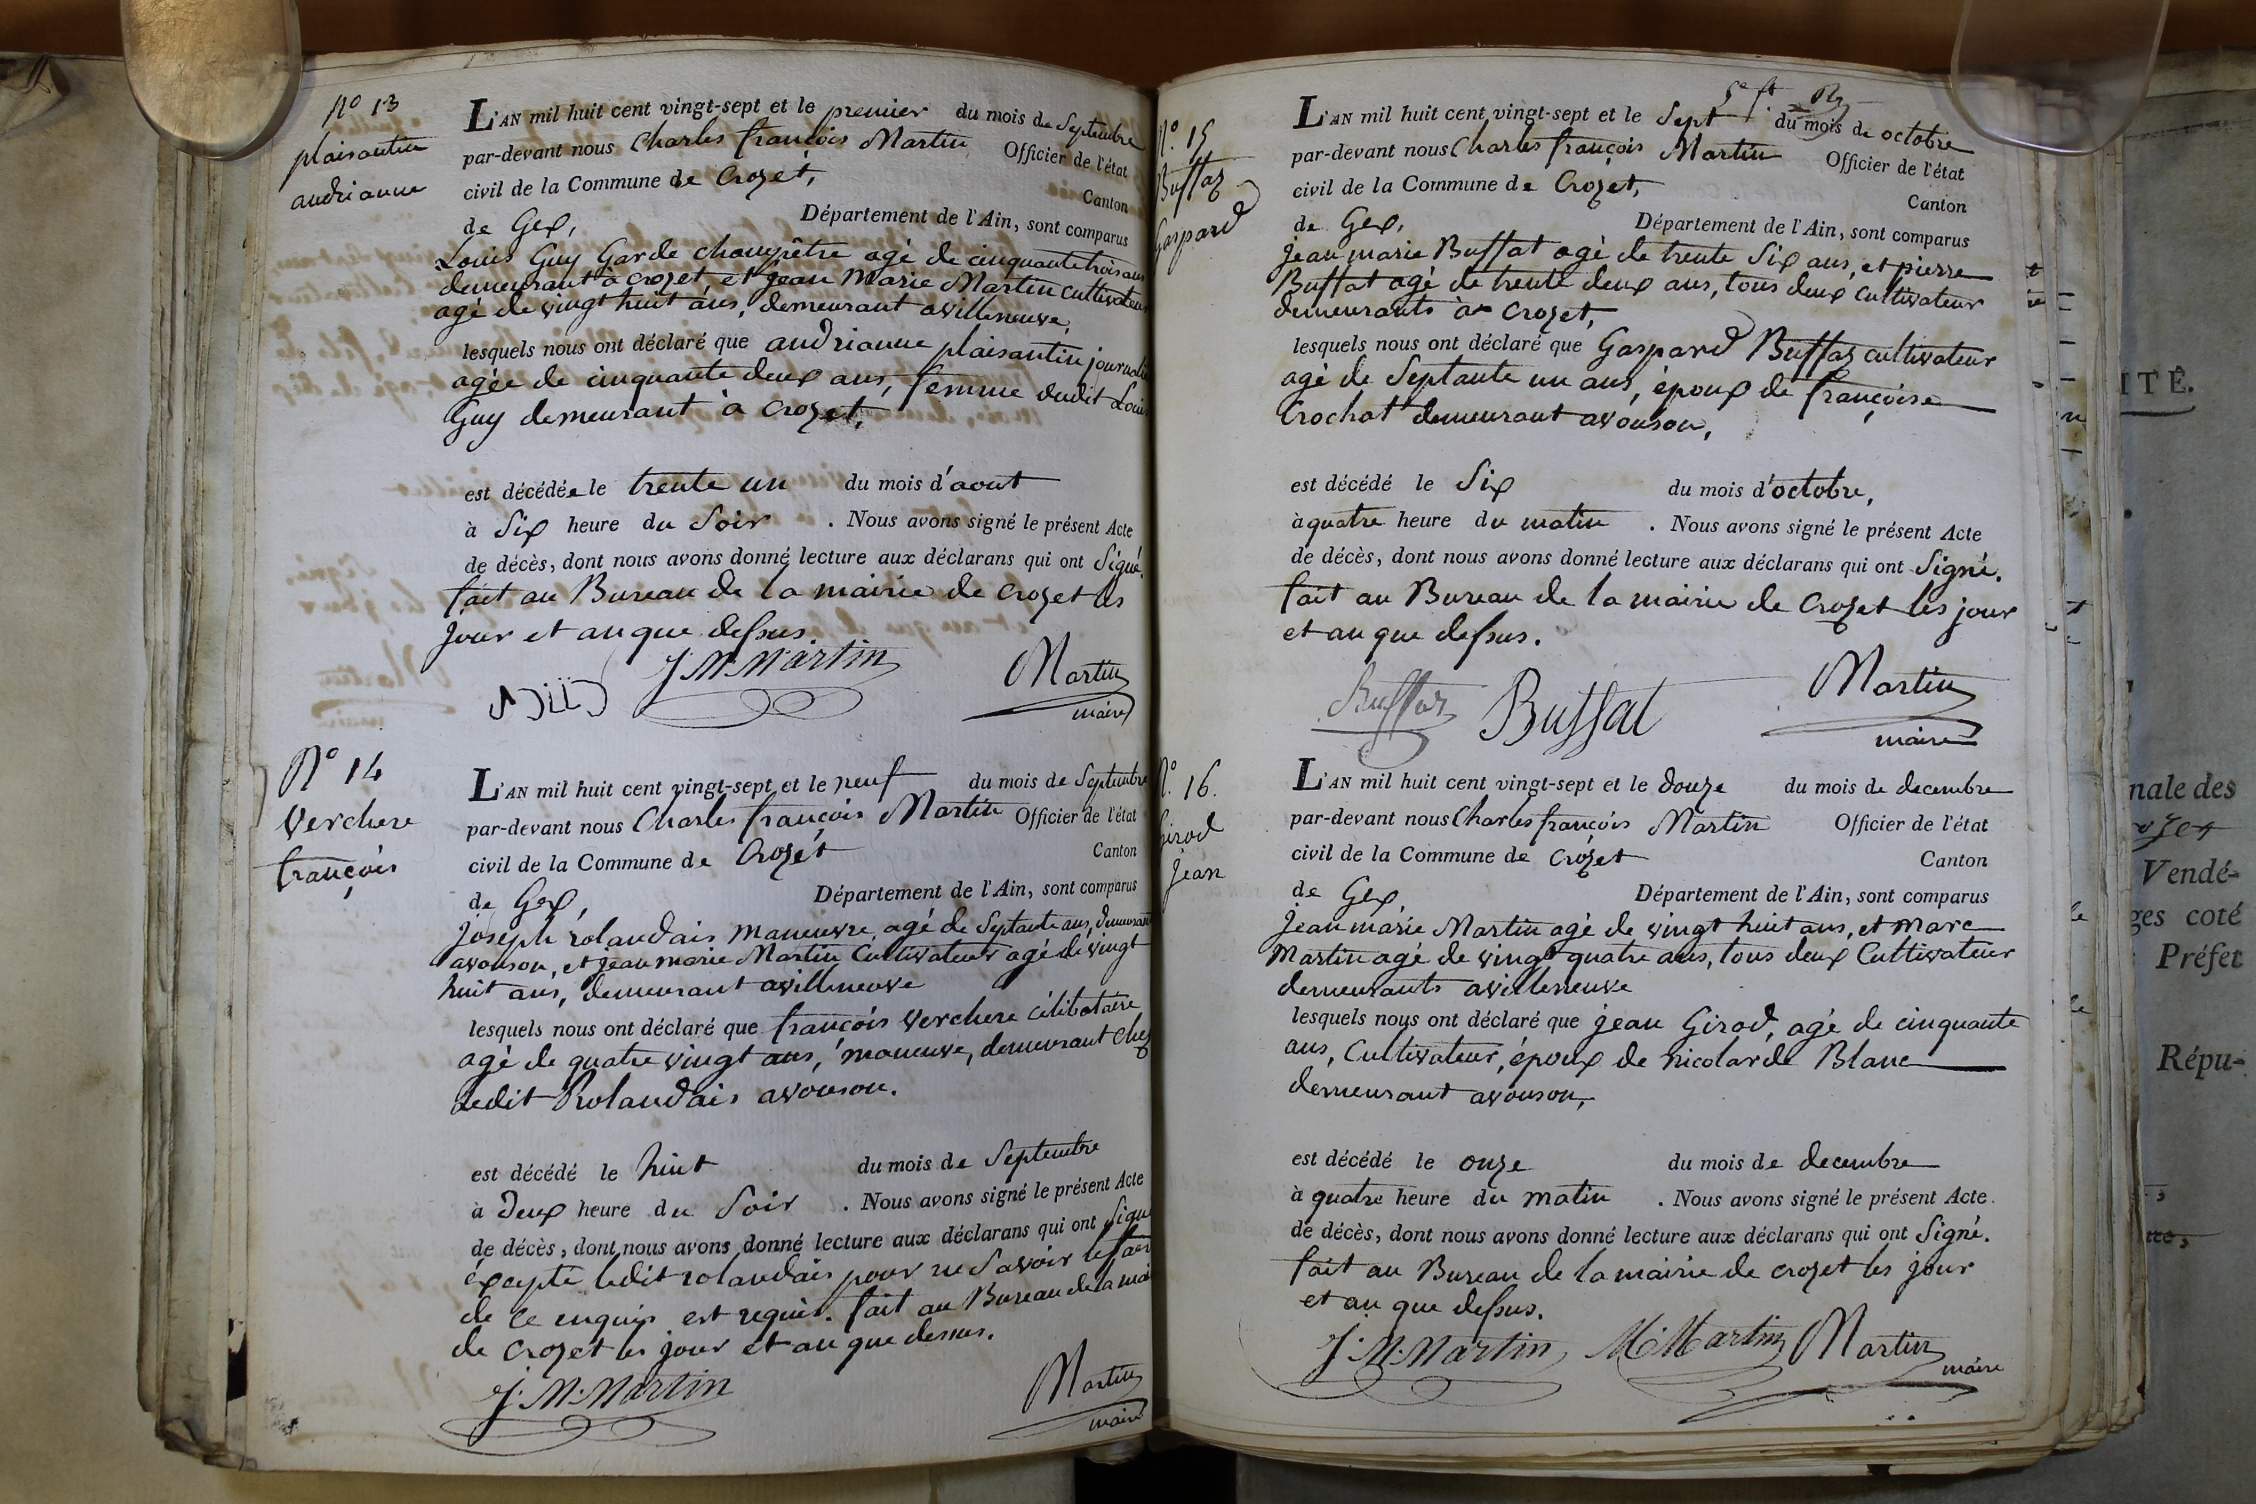 N° 13
plaisantin
andrianne
L'AN mil huit cent vingt-sept et le premier du mois de Septembre
par-devant nous Charles françois Martin Officier de l'état
civil de la Commune de Crozet, Canton
de Gex, Département de l'Ain, sont comparus
Louis Guy Garde champêtre agé de cinquante trois ans
demeurant à crozet, et jean Marie Martin cultivateur
agé de vingt huit ans, demeurant avilleneuve,
lesquels nous ont déclaré que andrianne plaisantin
agée de cinquante deux ans, femme dudit Louis
Guy demeurant à crozet,
est décédée le trente un du mois d'aout
à Six heure du Soir . Nous avons signé le présent Acte
de décès, dont nous avons donné lecture aux déclarans qui ont Signé.
fait au Bureau de la mairie de crozet les
jour et an que dessus.
J. M. Martin Martin
maire
N° 14
Verchere
françois
L'AN mil huit cent vingt-sept et le neuf du mois de Septembre
par-devant nous Charles françois Martin Officier de l'état
civil de la Commune de Crozet Canton
de Gex, Département de l'Ain, sont comparus
joseph rolandais maneuvre, agé de Septante ans, demeurant
avouson, et jean marie Martin Cultivateur agé de vingt
huit ans, demeurant avilleneuve
lesquels nous ont déclaré que françois Verchere célibataire
agé de quatre vingt ans, maneuve, demeurant chez
ledit Rolandais avouson.
est décédé le huit du mois de Septembre
à Deux heure du Soir . Nous avons signé le présent Acte
de décès, dont nous avons donné lecture aux déclarans qui ont Signé
éxcepté ledit rolandais pour ne Savoir le faire
de ce enquis est requis. fait au Bureau de la mai
de crozet les jour et an que dessus.
J. M. Martin Martin
maire
N° 15
Buffaz
Gaspard
L'AN mil huit cent vingt-sept et le Sept du mois de octobre
par-devant nous Charles françois Martin Officier de l'état
civil de la Commune de Crozet, Canton
de Gex, Département de l'Ain, sont comparus
jean marie Buffat agé de trente Six ans, et pierre
Buffat agé de trente deux ans, tous deux cultivateur
demeurants à crozet,
lesquels nous ont déclaré que Gaspard Buffaz cultivateur
agé de Septante un ans, époux de françoise
Crochat demeurant avouson,
est décédé le Six du mois d'octobre,
à quatre heure du matin . Nous avons signé le présent Acte
de décès, dont nous avons donné lecture aux déclarans qui ont Signé.
fait au Bureau de la mairie de Crozet les jour
et an que dessus.
Buffaz Buffat Martin
maire
N° 16.
Girod
Jean
L'AN mil huit cent vingt-sept et le douze du mois de decembre
par-devant nous Charles françois Martin Officier de l'état
civil de la Commune de Crozet Canton
de Gex, Département de l'Ain, sont comparus
jean marie Martin agé de vingt huit ans, et Marc
Martin agé de vingt quatre ans, tous deux Cultivateur
demeurants avilleneuve
lesquels nous ont déclaré que jean Girod, agé de cinquante
ans, Cultivateur, époux de nicolarde Blanc
demeurant avouson,
est décédé le onze du mois de decembre
à quatre heure du matin . Nous avons signé le présent Acte
de décès, dont nous avons donné lecture aux déclarans qui ont Signé.
fait au Bureau de la mairie de crozet les jour
et an que dessus.
J. M. Martin M. Martin Martin
maire
ITÉ.
nale des
Vendé-
ges coté
Préfet
Répu-